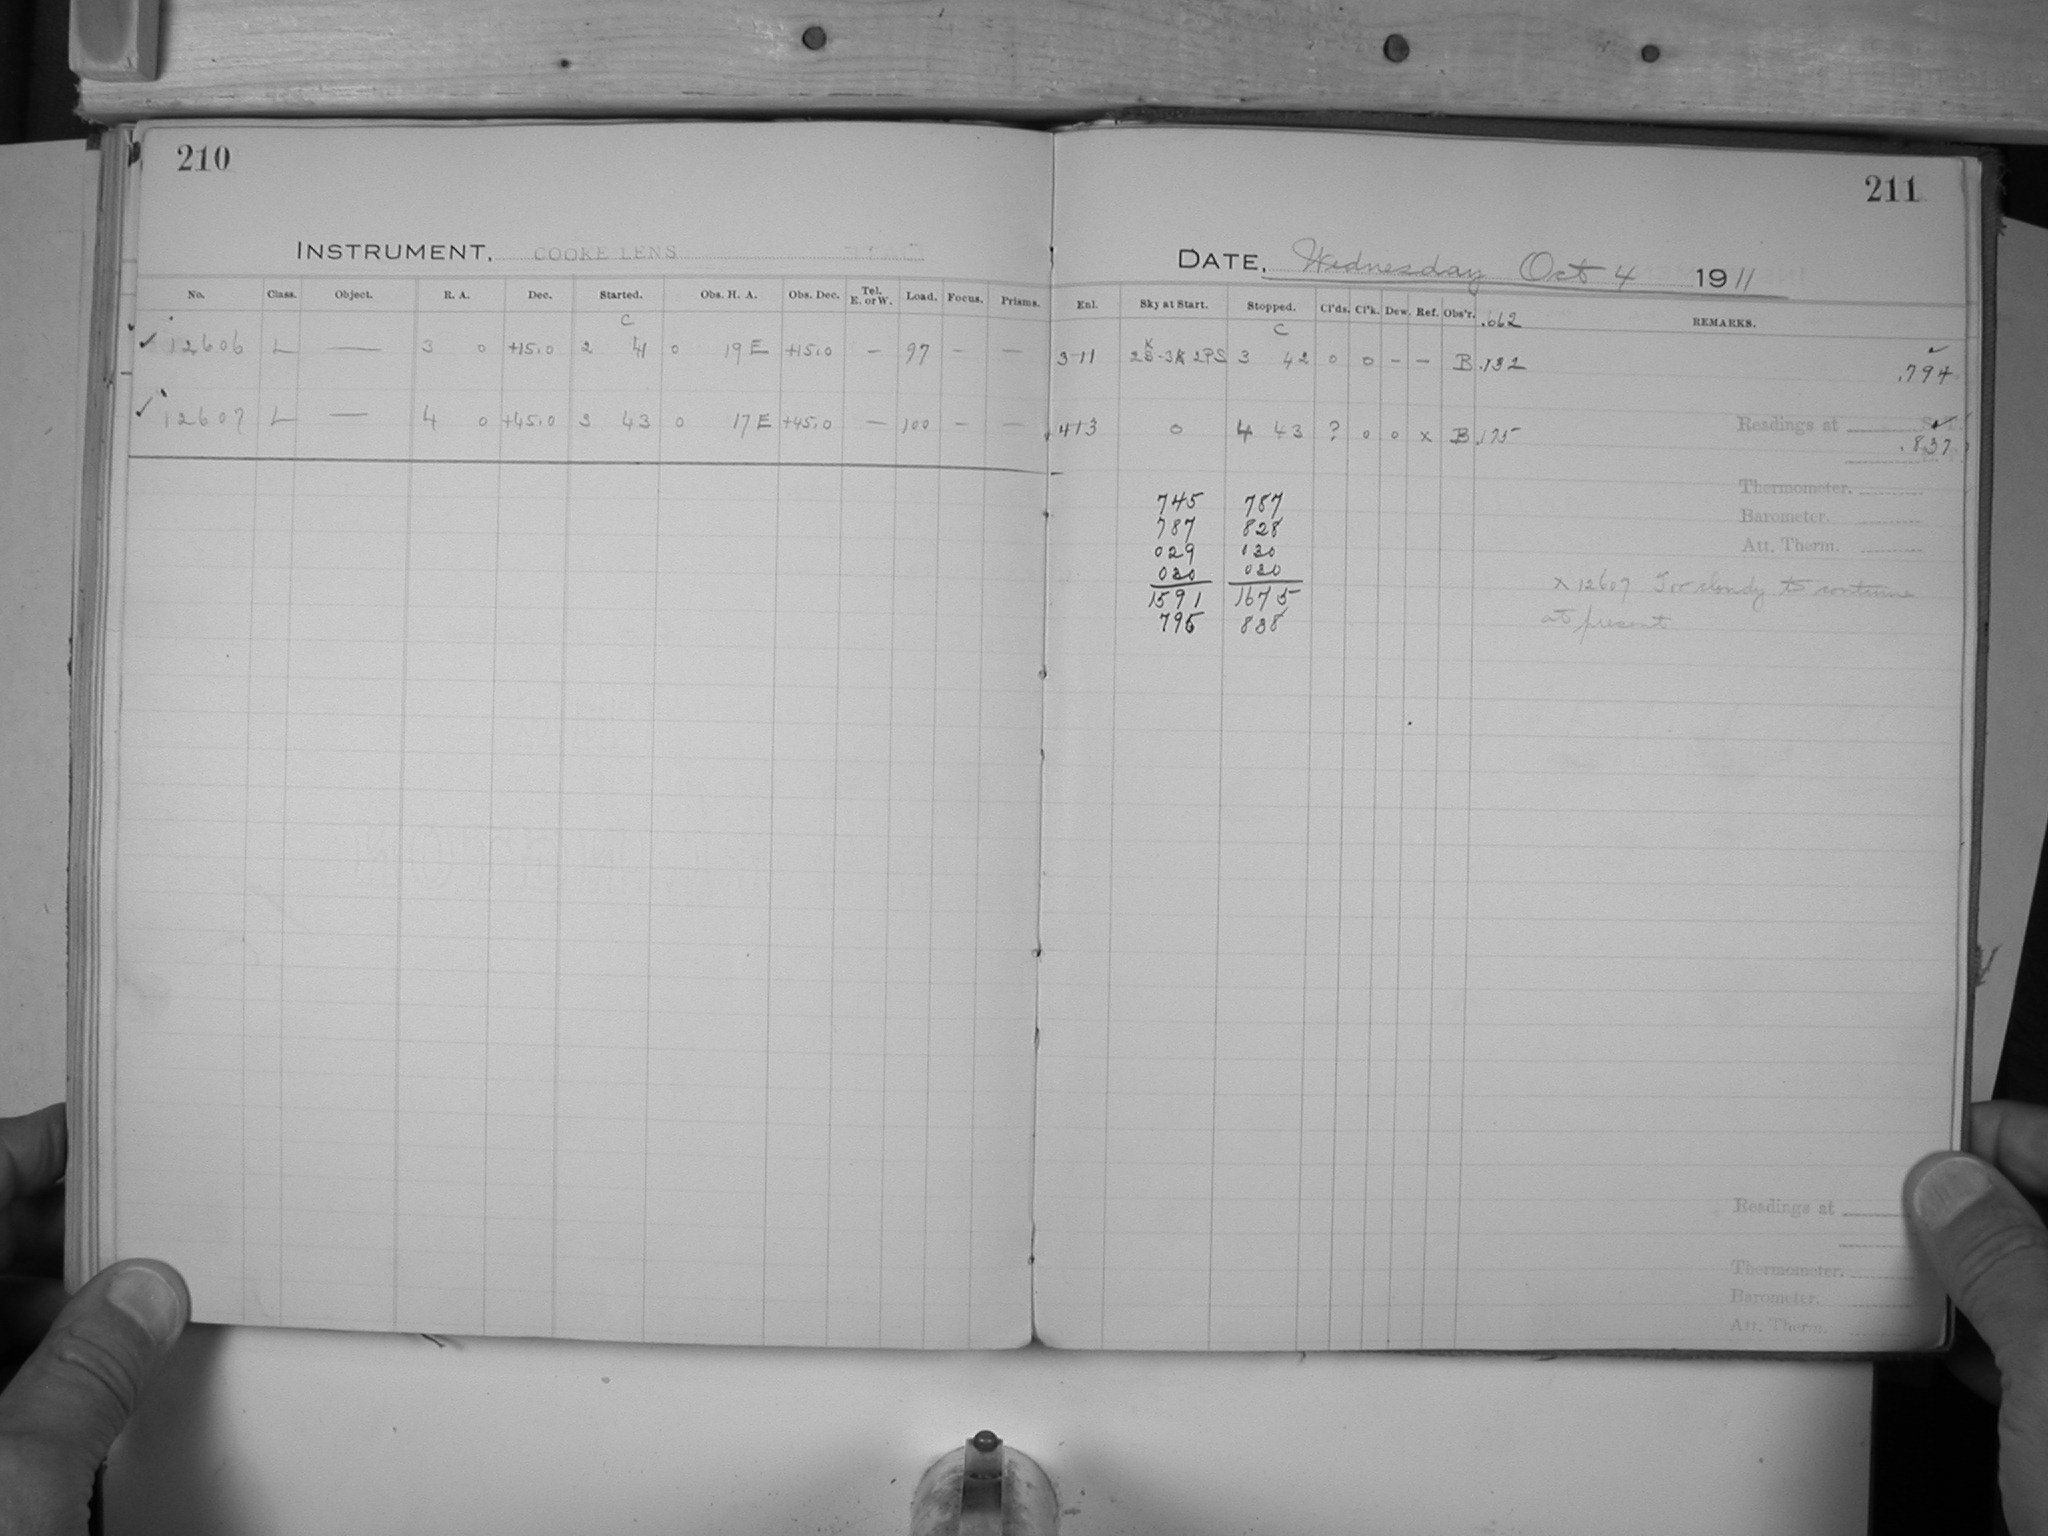 210
INSTRUMENT. COOKE LENS
No. Class. Object. R. A. Dec. Started. Obs. H. A. Obs. Dec. Tel. E. or W. Load. Focus. Prisms.
C
✓ 12606 L — 3 0 +15.0 2 41 0 19 E +15.0 — 97 — —
✓ 12607 L — 4 0 +45.0 3 43 0 17 E +45.0 — 100 — —
211
DATE. Wednesday Oct 4 1911
Enl. Sky at Start. Stopped. Cl'ds. Cl'k. Dew. Ref. Obs'r. .662 REMARKS.
C
3 11 2PS 3 42 0 0 – – B .132 .794
413 0 4 43 ? 0 0 x B .175 .837
Readings at
Thermometer.
Barometer.
Att. Therm.
745 787
787 828
029 030
030 030
1591 1675
795 838
x 12607 Too cloudy to continue
at present
Readings at
Thermometer.
Barometer.
Att. Therm.